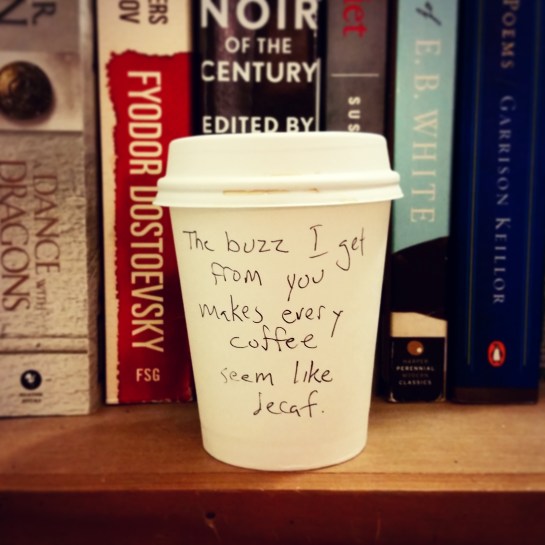 NOIR
OF THE
CENTURY
EDITED BY
FYODOR DOSTOEVSKY
FSG
DANCE WITH
DRAGONS
of E. B. WHITE
HARPER
PERENNIAL
MODERN
CLASSICS
POEMS GARRISON KEILLOR
The buzz I get
from you
makes every
coffee
seem like
decaf.